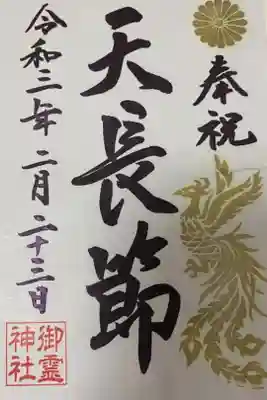 奉祝
天長節
令和三年 二月 二十三日
御霊
神社